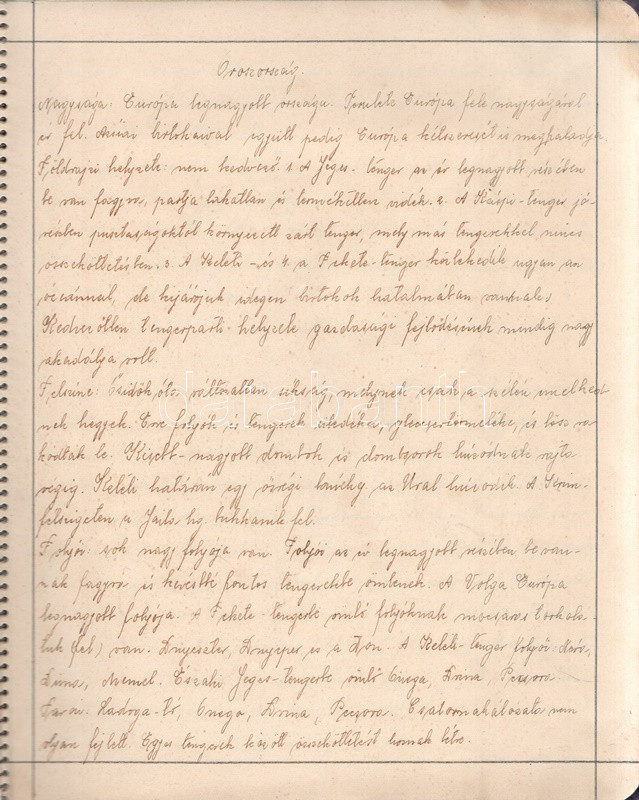 Oroszország.
Nagysága: Európa legnagyobb országa. Területe Európa fele nagyságával
ér fel. Ázsiai birtokaival együtt pedig Európa kétszeresét is meghaladja.
Földrajzi helyzete: nem kedvező. 1. A Jeges-tenger az év legnagyobb részében
be van fagyva, partja lakatlan és terméketlen vidék. 2. A Káspi-tenger jó-
részben pusztaságoktól környezett zárt tenger, mely más tengerekkel nincs
összeköttetésben. 3. A Keleti- és 4. a Fekete-tenger közlekedik ugyan, az
óceánnal, de kijárójuk idegen birtokok hatalmában vannak.
Kedvezőtlen tengerparti helyzete gazdasági fejlődésének mindig nagy
akadálya volt.
Felszíne: Ősidők óta változatlan síkság, melynek csak a szélén emelked-
nek hegyek. Erre folyók és tengerek üledékei, gleccsertörmeléke, és lösz ra-
kódtak le. Kisebb-nagyobb dombok és dombsorok húzódnak rajta
végig. Keleti határán egy ősrégi hegység az Ural húzódik. A Krím-
félszigeten a Jaila hg. bukkanik fel.
Folyói: sok nagy folyója van. Folyói az év legnagyobb részében be van-
nak fagyva és kevésbé fontos tengerekbe ömlenek. A Volga Európa
legnagyobb folyója. A Fekete-tengerbe ömlő folyóknak mocsaras torkola-
tuk (fel) van. Dnyeszter, Dnyeper és a Don. A Keleti-tenger folyói:
Düna, Memel. Északi Jeges-tengerbe ömlő Onega, Dvina, Pecsora.
Tavai. Ladoga-tó, Onega, Dvina, Pecsora. Csatornahálózata nem
olyan fejlett. Egyes tengerek között összeköttetést hoznak létre.
darabanth